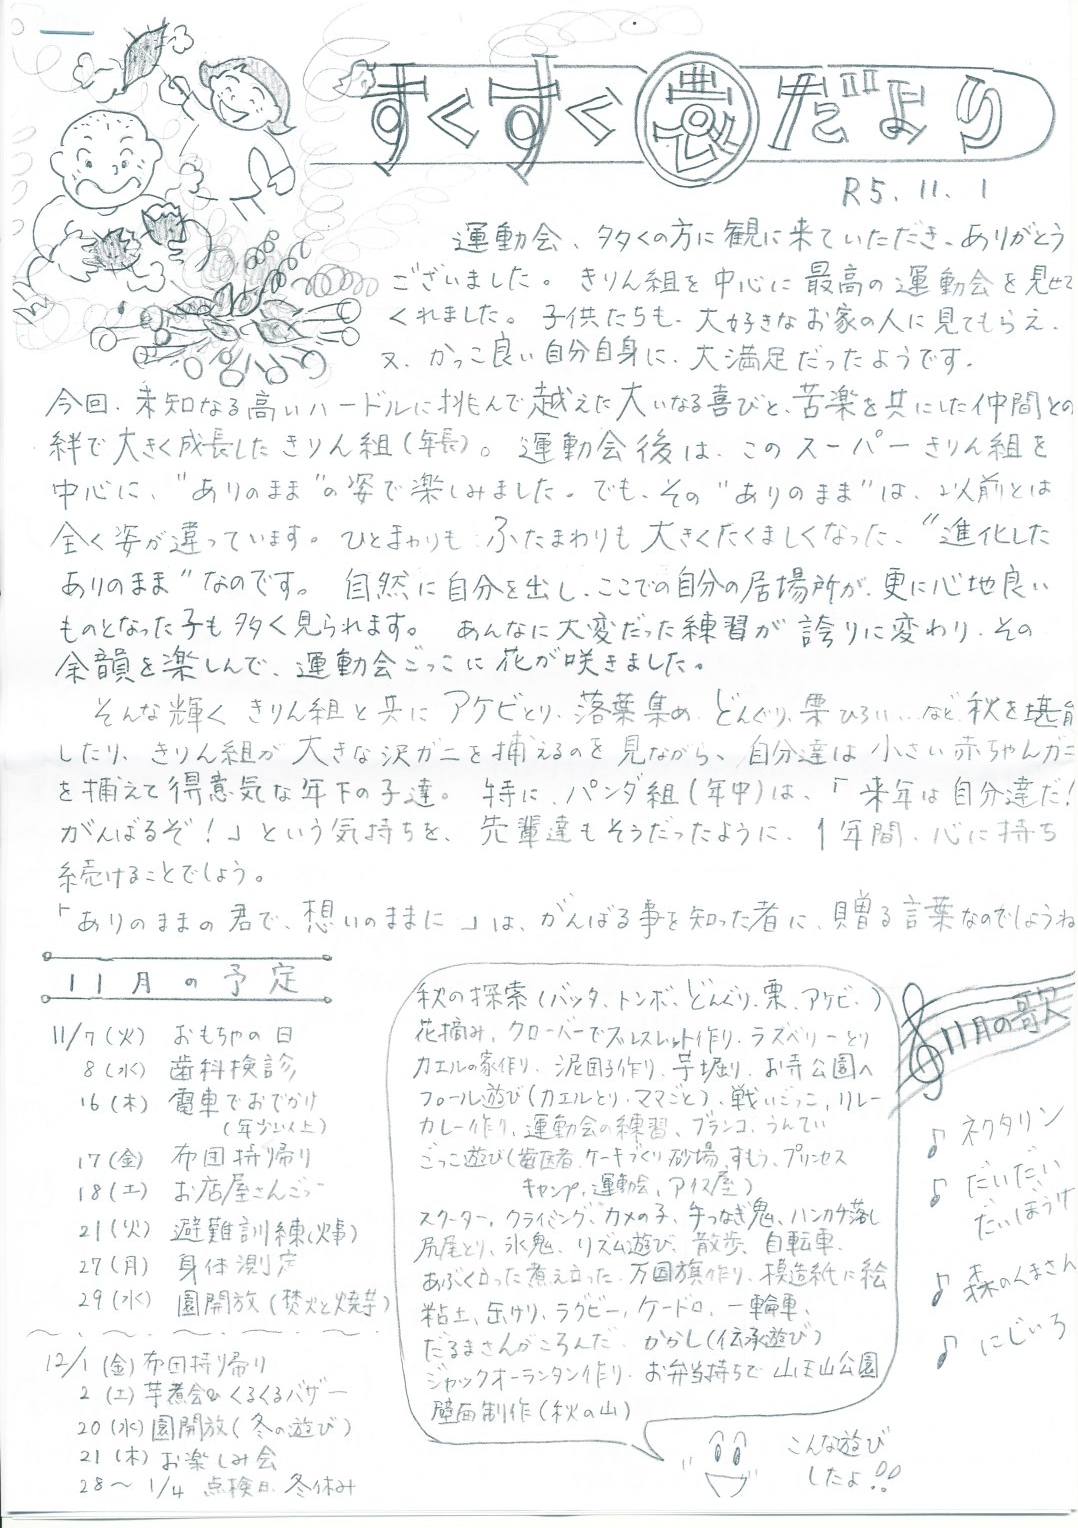 すくすく農だより
R5.11.1
運動会、多くの方に観に来ていただき、ありがとう
ございました。きりん組を中心に最高の運動会を見せて
くれました。子供たちも、大好きなお家の人に見てもらえ、
又、かっこ良い自分自身に、大満足だったようです。
今回、未知なる高いハードルに挑んで越えた大いなる喜びと、苦楽を共にした仲間との
絆で大きく成長したきりん組(年長)。運動会後は、このスーパーきりん組を
中心に、"ありのまま"の姿で楽しみました。でも、その"ありのまま"は、以前とは
全く姿が違っています。ひとまわりも、ふたまわりも大きくたくましくなった、"進化した
ありのまま"なのです。自然に自分を出し、ここでの自分の居場所が、更に心地良い
ものとなった子も多く見られます。あんなに大変だった練習が誇りに変わり、その
余韻を楽しんで、運動会ごっこに花が咲きました。
そんな輝くきりん組と共にアケビとり、落葉集め、どんぐり、栗ひろい…など、秋を堪能
したり、きりん組が大きな沢ガニを捕えるのを見ながら、自分達は小さい赤ちゃんガニ
を捕えて得意気な年下の子達。特に、パンダ組(年中)は、「来年は自分達だ!
がんばるぞ!」という気持ちを、先輩達もそうだったように、1年間、心に持ち
続けることでしょう。
「ありのままの君で、想いのままに」は、がんばる事を知った者に、贈る言葉なのでしょうね
11月の予定
11/7(火) おもちゃの日
8(水) 歯科検診
16(木) 電車でおでかけ
(年少以上)
17(金) 布団持り帰り
18(土) お店屋さんごっこ
21(火) 避難訓練(火事)
27(月) 身体測定
29(水) 園開放(焚火と焼芋)
12/1(金)布団持り帰り
2(土)芋煮会&くるくるバザー
20(水)園開放(冬の遊び)
21(木)お楽しみ会
28～1/4 点検日、冬休み
秋の探索(バッタ、トンボ、どんぐり、栗、アケビ、)
花摘み、クローバーでブレスレット作り、ラズベリーとり
カエルの家作り、泥団子作り、芋堀り、お寺公園へ
プール遊び(カエルとり・ママごと)、戦いごっこ、リレー
カレー作り、運動会の練習、ブランコ、うんてい
ごっこ遊び(歯医者、ケーキづくり、砂場、すもう、プリンセス
キャンプ、運動会、アイス屋)
スクーター、クライミング、カメの子、手つなぎ鬼、ハンカチ落し
尻尾とり、氷鬼、リズム遊び、散歩、自転車、
あぶく立った煮え立った、万国旗作り、模造紙に絵
粘土、缶けり、ラグビー、ケードロ、一輪車、
だるまさんがころんだ、かかし(伝承遊び)
ジャックオーランタン作り、お弁当持ちで山王山公園
壁面制作(秋の山)
こんな遊び
したよ!!
11月の歌
♪ ネクタリン
♪ だいだい
だいぼうけ
♪ 森のくまさん
♪ にじいろ